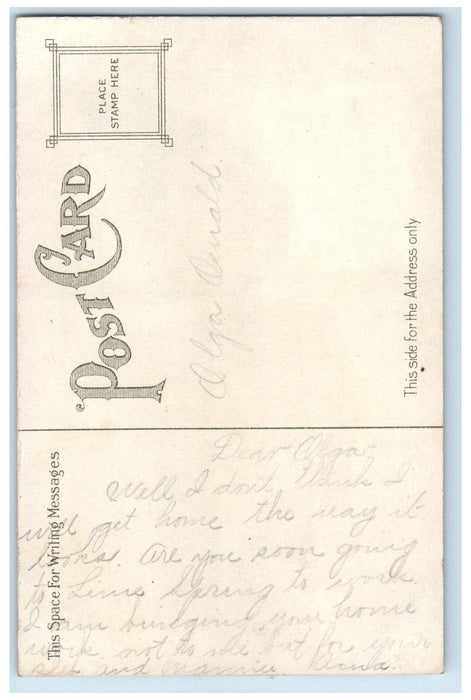 PLACE
STAMP HERE
POST CARD
Olga
This side for the Address only
This Space For Writing Messages
Dear Olga.
Well I dont think I
will get home the way it
looks. Are you soon going
to Lime Spring to work.
I am bringing your home
work not to me but for your
and